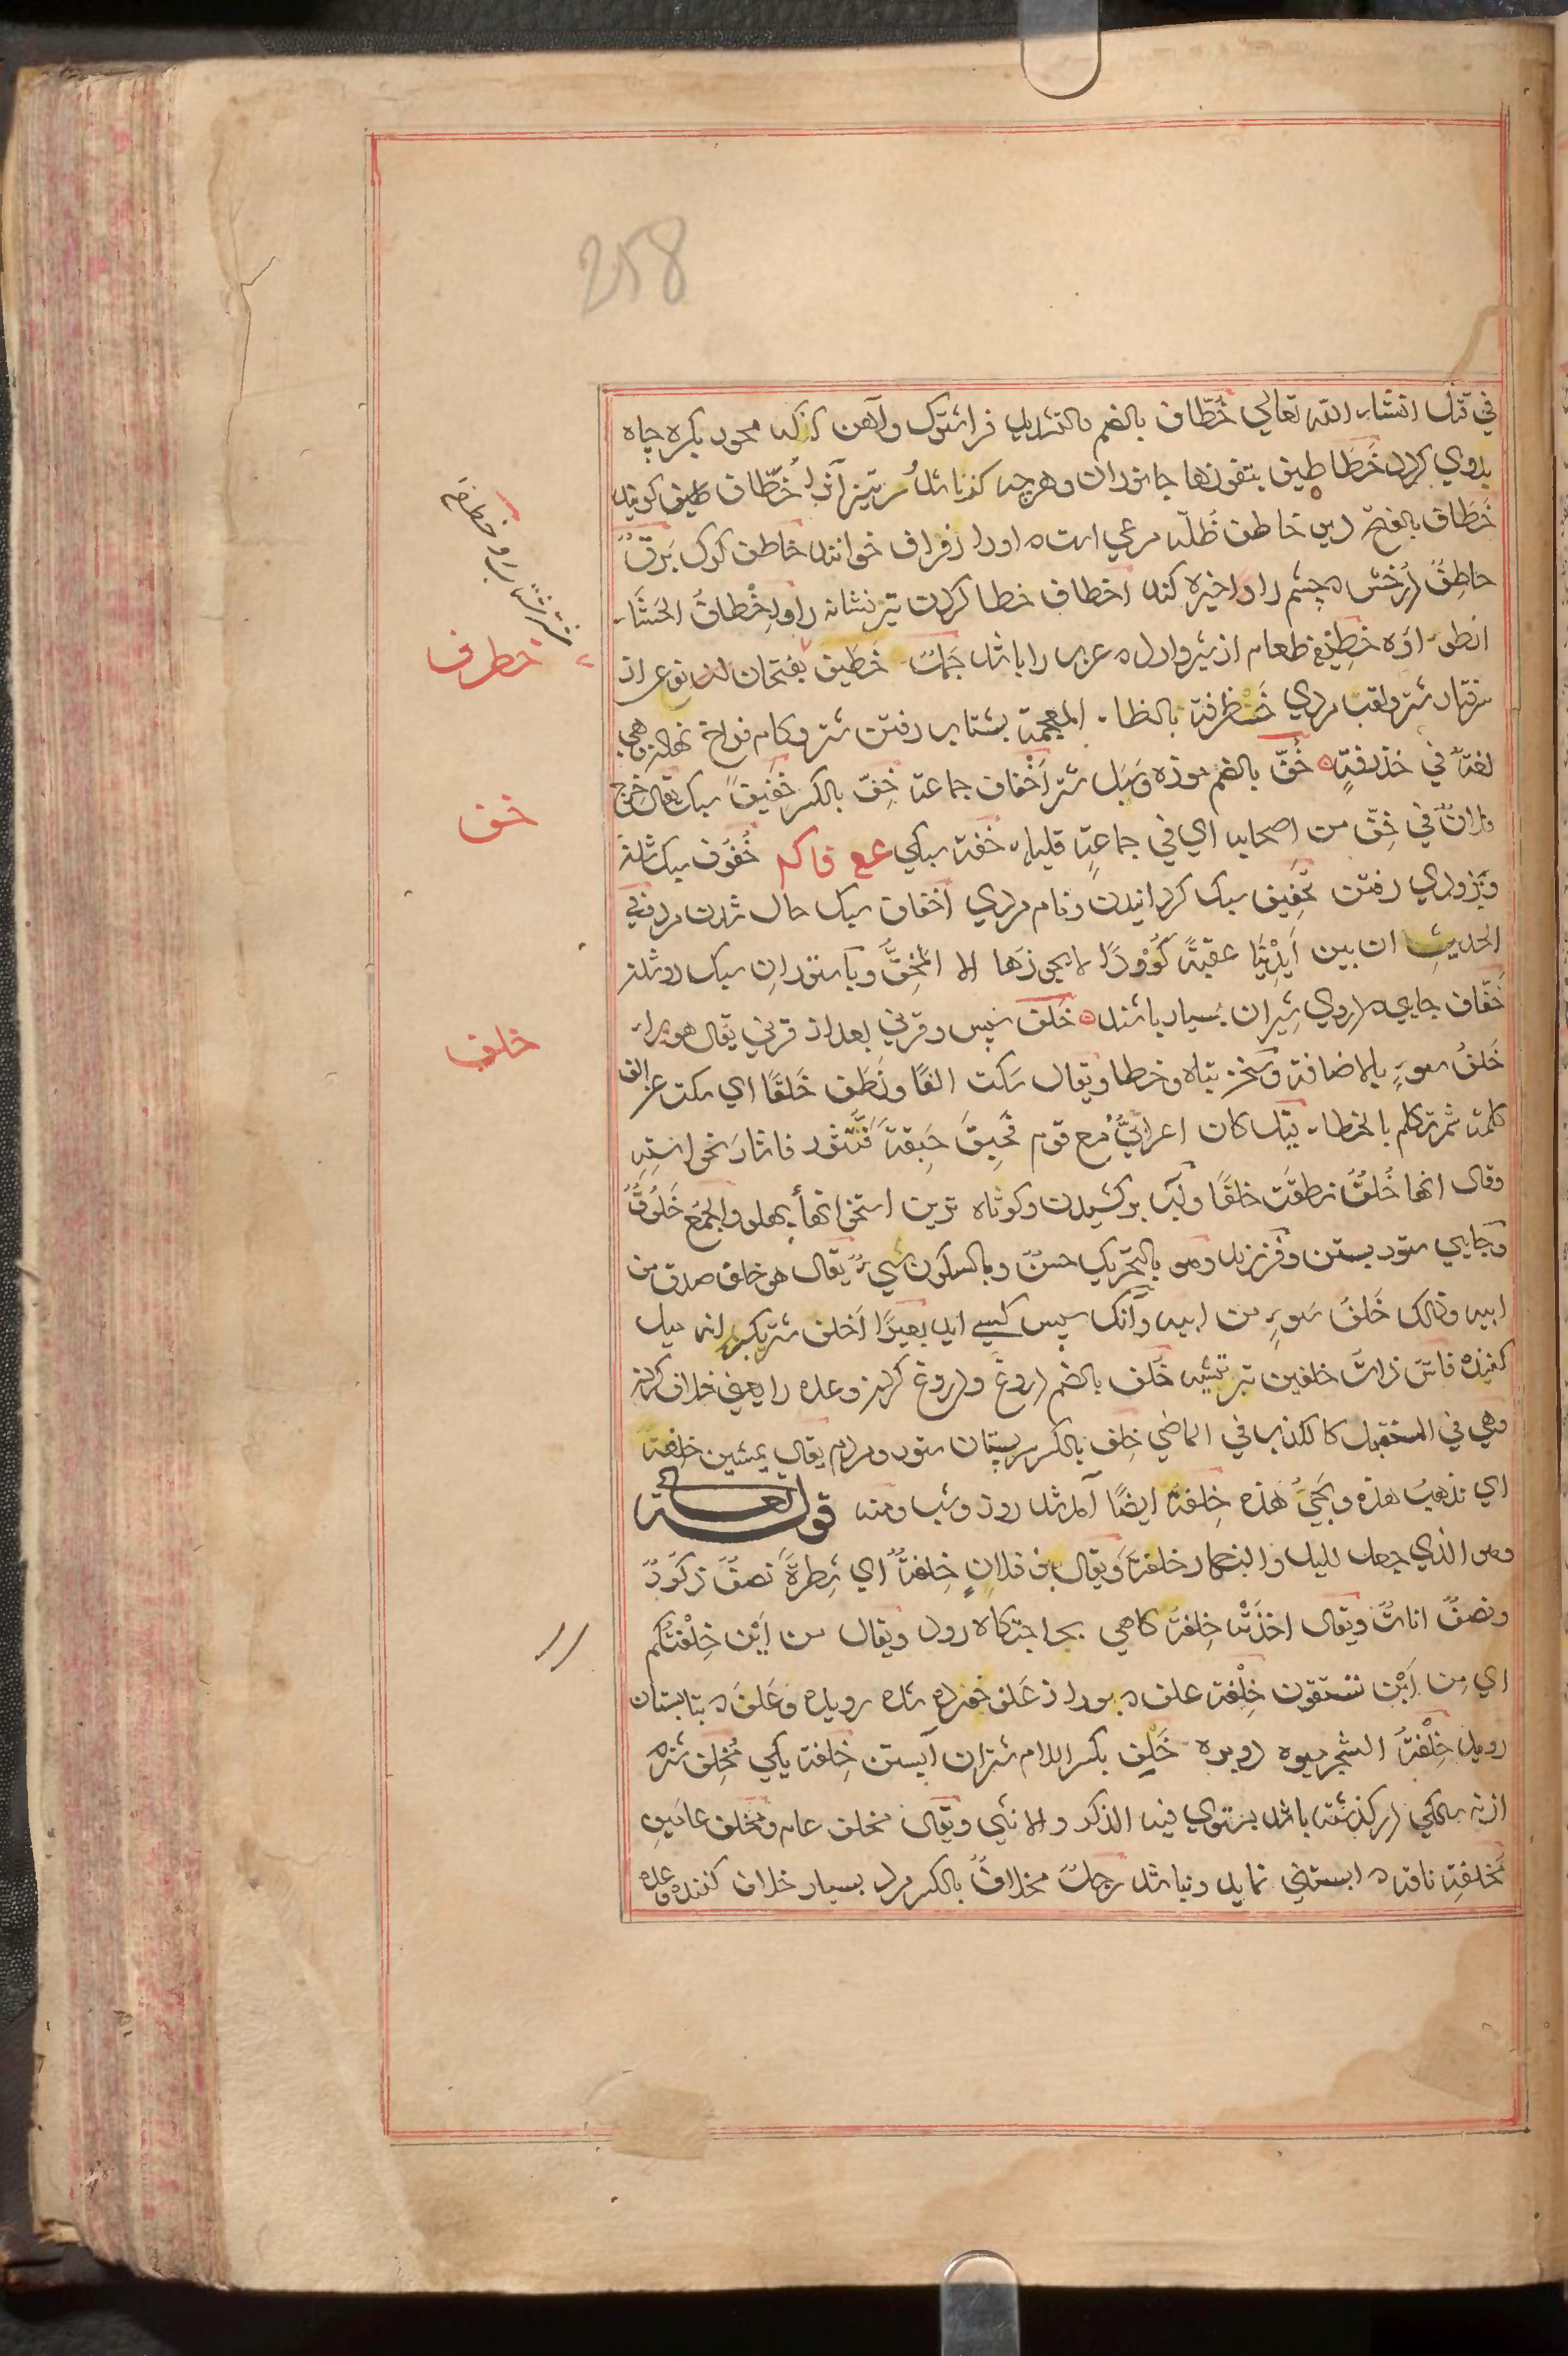 258
في قتل انشاء الله تعالي خُطّاف بالضم والتشديد فراشتوك وآهن كژ كه محور بكره چاه
بدوي كردد خَطَاطيف بتفوزها جانوران وهرچه كژ باشد سرتيز آنرا خُطّاف طيف كويند
خَطَاف بالفتح ديو خاطف ظلّه مرغي است ه اورا رفراف خوانند خاطف كرك بَرقٌ
خاطِفٌ درخش ه چشم را واخيره كند اخطاف خطا كردن تير نشانه را وإخْطافُ الحَشَاء
انطواؤه خطيفة طعام از شير وارد ه عرب را باشد جَمَلٌ خَطَيف بفتحات نوعي از
رفتار شتر ولقب مردي خَنْظرفة بالظاء المعجمة بشتاب رفتن شتر وكام فراخ نهادن وهي
لغةٌ في خذرفةٍ ه خُفّ بالضم موزه وسَبَل شتر أخْفاف جماعة خِفّ بالكسر خَفيف سبك يقال خرج
فلانٌ في خِفّ من اصحابه اي في جماعةٍ قليلة خفة سبكي ع ع فاكم خُفُوف سبك شدن
وبزودي رفتن تخفيف سبك كردانيدن ونام مردي اخفاف سبك حال شدن مرد وفي
الحديث ان بين أيْدِيْنَا عقبةً كَؤُوْدًا لا يجوزها الا المُخِفُّ وبا ستوران سبك رو شدن
خَفّان جايي ه دروي شيران بسيار باشند ه خَلف سپس وقرني بعد از قرني يقال هوءلاء
خَلفُ سوءٍ بالاضافة وسخن تباه وخطا ويقال سكت الفًا ونَطَقَ خَلفًا اي سكت عن الف
كلمة ثم تكلم بالخطاء يقال كان اعرابيٌّ مع قوم فحبقَ حَبِقةً فَتَشَوَّرَ فاشار نحو استه
وقال انها خَلْفٌ نطقَت خلفًا وآب بركشيدن وكوتاه ترين استخوانها پهلو والجمع خُلُوفٌ
وجايي ستور بستن وفرزند وهو بالتحريك حسنٌ وبالسكون سَيّءٌ يقال هو خلف صدق من
ابيه وذلك خَلفُ سَوءٍ من ابيه وآنك سپس كسي آيد بعيرٌ اَخلف شتر بكرانه ميل
كننده فاسٌ ذات خلفين تبر تيشه خُلف بالضم دروغ ودروغ كردن وعده را يعني خلاف كردن
وهي في المستقبل كالكذب في الماضي خِلف بالكسر سر پستان ستور ومردم يقال يمشين خِلفةً
اي تذهب هذه وتجيُ هذه خِلفة ايضًا آمد شد روز وشب ومنه قوله تعالى
وهو الذي جعل الليل والنهار خلفةً ويقال بني فلانٍ خِلفةٌ اي شِطرةٌ نصفٌ ذكورٌ
ونصفٌ اناثٌ ويقال اخَذَتْه خِلفةٌ كاهي بحاجتكاه رود ويقال من اَيْنَ خِلْفتُكم
اي مِن اَيْن تستقون خِلْفة علف ه بود از عَلَف خورده شده رويده وعَلَف ه بتابستان
رويد خِلْفةُ الشجر ميوه دويره خَلِف بكسر اللام شتران آبستن خَلِفة يكي مُخْلِف شتره
از نه سالكي در كذشته باشد يستوي فيه الذكر والانثي ويقال مخلف عام ومخلف عامَين
مُخلِفة ناقه ه آبستني نمايد ونباشد رجلٌ مخلافٌ بالكسر مرد بسيار خلاف كننده وعده
خطرف
خف
خلف